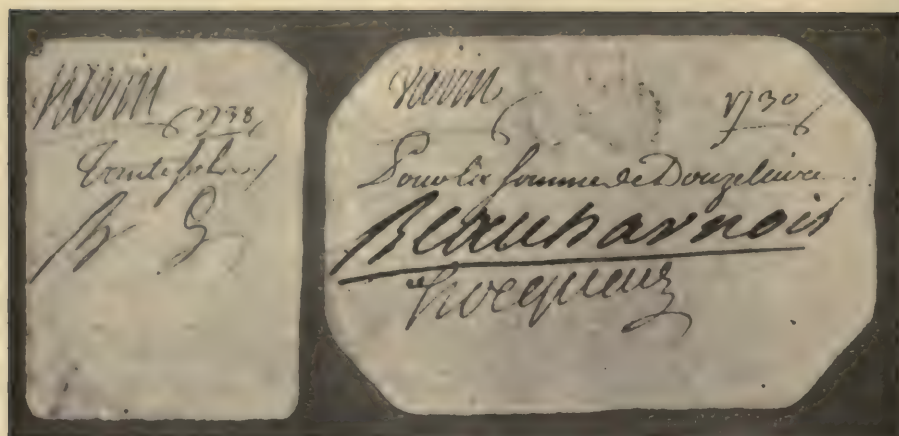 Varin
1738
Trente sols
B H
Varin 1730
Pour la somme de Douze livres
Beauharnois
hocquart